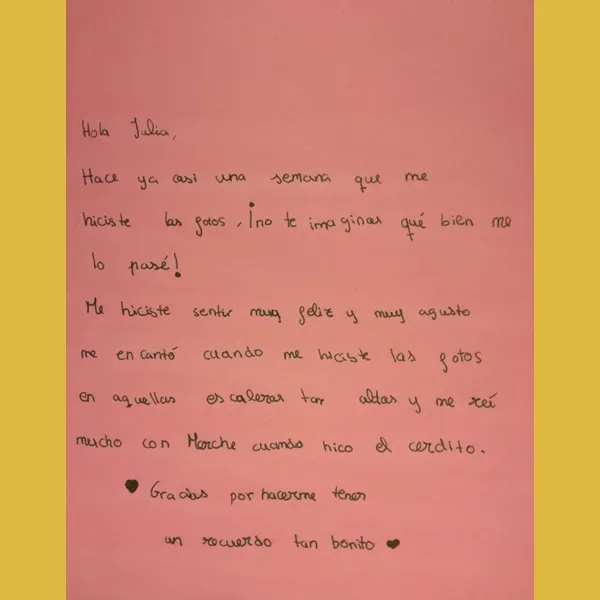 Hola Julia,
Hace ya casi una semana que me
hiciste las fotos, ¡no te imaginas qué bien me
lo pasé!
Me hiciste sentir muy feliz y muy agusto
me encantó cuando me hiciste las fotos
en aquellas escaleras tan altas y me reí
mucho con Merche cuando hico el cerdito.
♥ Gracias por hacerme tener
un recuerdo tan bonito ♥